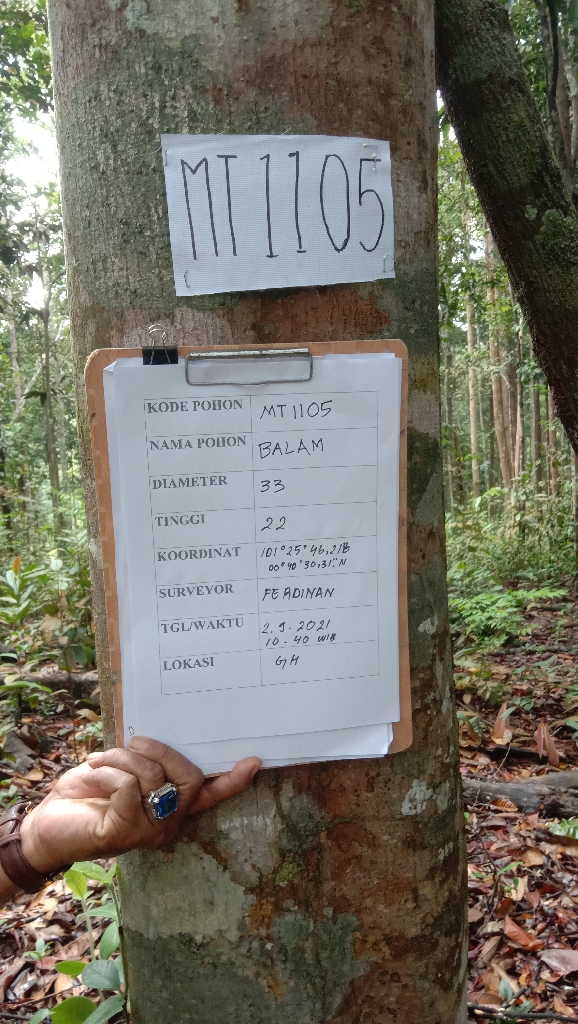 MT1105
KODE POHON MT1105
NAMA POHON BALAM
DIAMETER 33
TINGGI 22
KOORDINAT 101°25'46,21B
00°40'30,31"N
SURVEYOR FERDINAN
TGL/WAKTU 2.9.2021
10-40 WIB
LOKASI GH